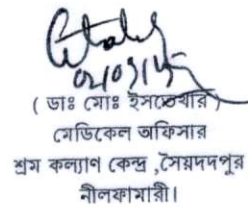 ( ডাঃ মোঃ ইসতেখার )
মেডিকেল অফিসার
শ্রম কল্যাণ কেন্দ্র ,সৈয়দদপুর
নীলফামারী।